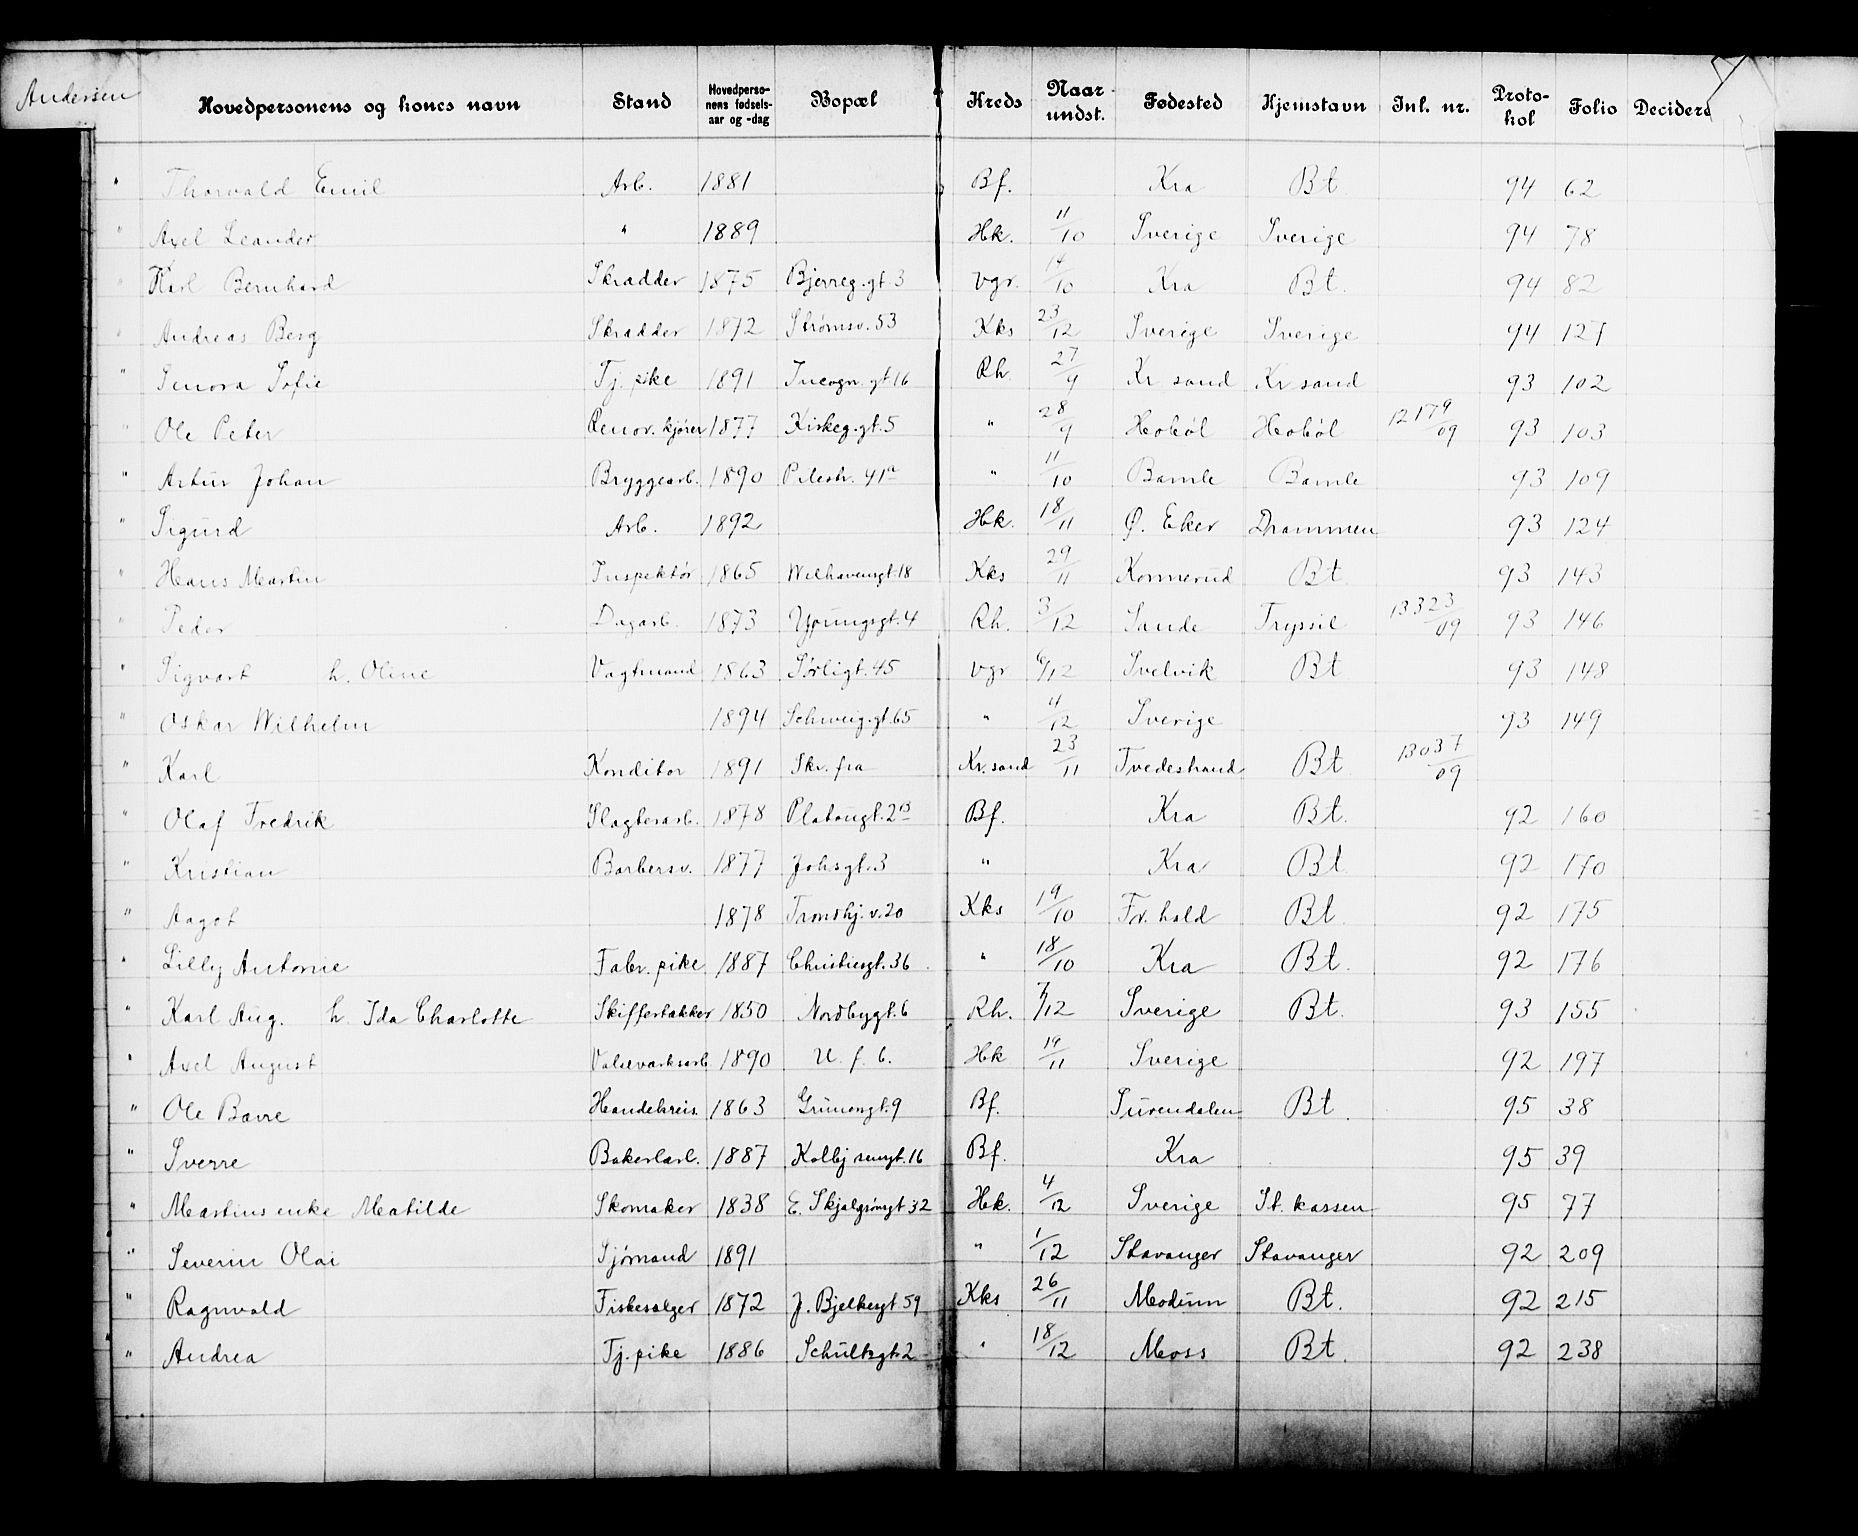 Andersen
Hovedpersonens og hones navn Stand Hovedperso-nens fødsels-aar og -dag Bopæl Kreds Naar undst. Fødested Hjemstavn Inl. nr. Proto-kol Folio Decidere
" Thorvald Emil Arb. 1881 Bf. Kra Bt. 94 62
" Axel Leander " 1889 Hk. 11/10 Sverige Sverige 94 78
" Karl Bernhard Skrædder 1875 Bjerreg.gt. 3 Vgr. 14/10 Kra Bt. 94 82
" Andreas Berg Skrædder 1872 Strømsv. 53 Kks 23/12 Sverige Sverige 94 127
" Sofie Tj. pike 1891 Incogn.gt 16 Rh. 27/9 Kr sand Kr sand 93 102
" Ole Peter Renov. kjører 1877 Kirkeg.gt. 5 " 28/9 Hobøl Hobøl 12179/09 93 103
" Artur Johan Bryggearb. 1890 Pilestr. 41a " 11/10 Bamle Bamle 93 109
" Sigurd Arb. 1892 Hk. 18/11 Ø. Eker Drammen 93 124
" Hans Martin Inspektør 1865 Welhavensgt. 18 Kks 29/11 Konnerud Bt. 93 143
" Peder Dagarb. 1873 Youngsgt. 4 Rh. 3/12 Sande Tryssil 13323/09 93 146
" Sigvart h. Oline Vagtmand 1863 Sørligt. 45 Vgr 6/12 Svelvik Bt 93 148
" Oskar Wilhelm 1894 Schweig.gt. 65 " 4/12 Sverige 93 149
" Karl Konditor 1891 Skr. fra Kr. sand 23/11 Tvedestrand Bt. 13037/09
" Olaf Fredrik Slagterarb. 1878 Platougt. 2B Bf. Kra Bt. 92 160
" Kristian Barbersv. 1877 Johsgt. 3 " Kra Bt. 92 170
" Aagot 1878 Tronshj. v. 20 Kks 19/10 Fr. hald Bt. 92 175
" Lilly Antonie Fabr. pike 1887 Christiesgt. 36 " 18/10 Kra Bt. 92 176
" Karl Aug. h. Ida Charlotte Skiffertækker 1850 Nordbygt. 6 Rh. 7/12 Sverige Bt. 93 155
" Axel August Valseværksarb 1890 U. f. b. Hk 19/11 Sverige 92 197
" Ole Bavre Handelsreis. 1863 9 Bf. Surendalen Bt. 95 38
" Sverre Bakerlærl. 1887 Kolbjrnsgt. 16 Bf. Kra 95 39
" Martins enke Matilde Skomaker 1838 E. Skjalgsønsgt 32 Hk. 4/12 Sverige St. kassen 95 77
" Severin Olai Sjømand 1891 " 1/12 Stavanger Stavanger 92 209
" Ragnvald Fiskesælger 1872 J. Bjelkesgt 59 Kks 26/11 Modum Bt. 92 215
" Andrea Tj. pike 1886 Schultzgt. 2 " 18/12 Moss Bt. 92 238